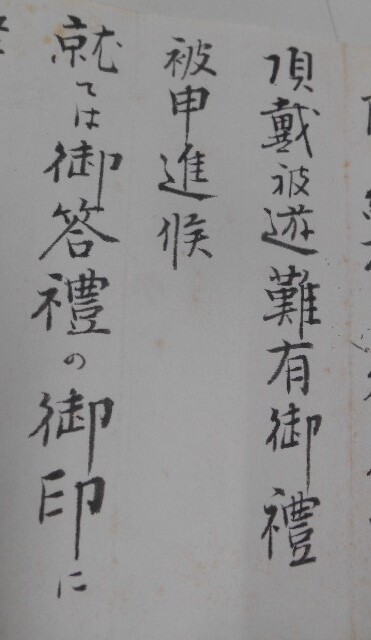 頂戴被遊難有御禮
被申進候
就ては御答禮の御印に